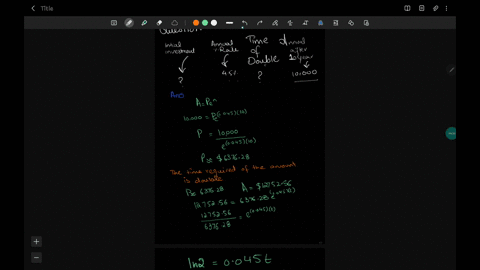 Title
Question:
Initial investment Annual Rate Time of Double Amount after 10 year
? 4.5% ? 10,000
Ans
10,000 = Pe^(0.045)(10)
P = 10,000 / e^(0.045)(10)
P ≈ $6376.28
The time required of the amount
is double
P = 6376.28 A = $12752.56
12752.56 = 6376.28 e^(0.045)(t)
12752.56 / 6376.28 = e^(0.045)(t)
ln2 = 0.045t